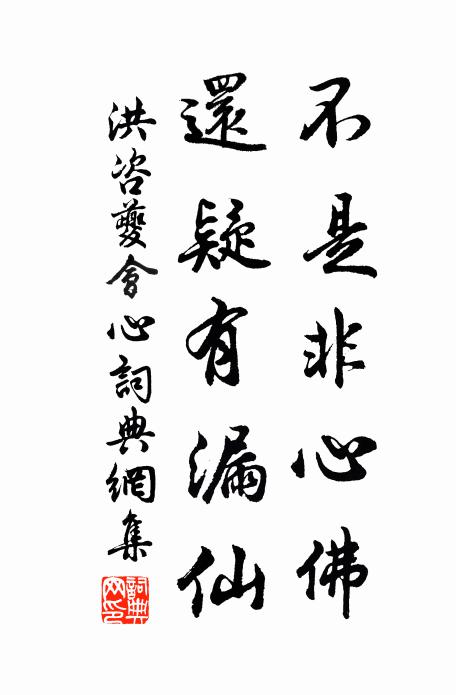 不是非心佛
還疑有漏仙
洪咨夔會心詞典網集
詞典網印